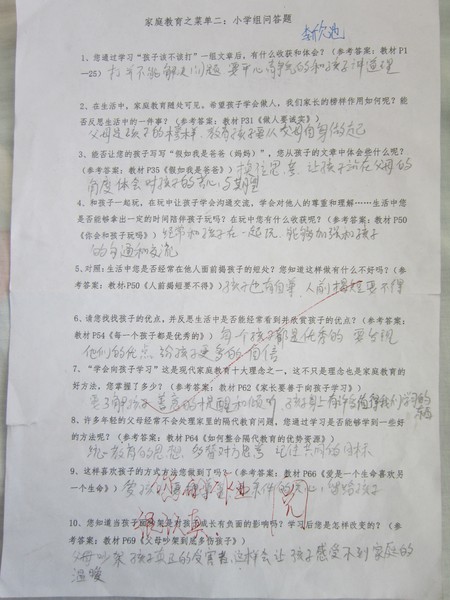 家庭教育之菜单二：小学组问答题
1、您通过学习“孩子该不该打”一组文章后，有什么收获和体会？（参考答案：教材P1
—25）打并不能解决问题 要平心静气的和孩子讲道理
2、在生活中，家庭教育随处可见。希望孩子学会做人，我们家长的榜样作用如何呢？能
否反思生活中的一件事？（参考答案：教材P31《做人要诚实》）
父母是孩子的榜样，教育孩子要从父母自身做起
3、能否让您的孩子写写“假如我是爸爸（妈妈）”，您从孩子的文章中体会些什么呢？
（参考答案：教材P35《假如我是爸爸》）换位思考 让孩子站在父母的
角度体会对孩子的 与期望
4、和孩子一起玩，在玩中让孩子学会沟通交流，学会对他人的尊重和理解……生活中您
是否能够拿出一定的时间陪伴孩子玩吗？在玩中您有什么收获呢？（参考答案：教材P50
《你会和孩子玩吗》）经常和孩子在一起玩，能够加强和孩子
的沟通和交流
5、对照：生活中您是否经常在他人面前揭孩子的短处？您知道这样做有什么不好吗？（参
考答案：教材P50《人前揭短要不得》）孩子也有自尊，人前揭短要不得
6、请您找找孩子的优点，并反思生活中是否能经常看到并欣赏孩子的优点？（参考答案：
教材P54《每一个孩子都是优秀的》）每个孩子都是优秀的 要发现
他们的优点，给孩子更多的自信
7、“学会向孩子学习”这是现代家庭教育十大理念之一，这不只是理念也是家庭教育的
好方法，您掌握了多少？（参考答案：教材P62《家长要善于向孩子学习》）
要了解孩子 善意的提醒和倾听，孩子身上有许多值得我们学习的
东西
8、许多年轻的父母经常不会处理家里的隔代教育问题，您通过学习是否能够学到一些好
的方法呢？（参考答案：教材P64《如何整合隔代教育的优势资源》）
教育的思想，多替对方思考 记住共同的目标
9、这样喜欢孩子的方式方法您做到了吗？（参考答案：教材P66《爱是一个生命喜欢另
一个生命》）爱孩子 条件的 孩子
10、您知道当孩子面吵架是对孩子成长有负面的影响吗？学习后您是怎样改变的？（参
考答案：教材P69《父母吵架到底多伤孩子》）
很认真
父母吵架 孩子真正的受害者，这样会让孩子感受不到家庭的
温暖